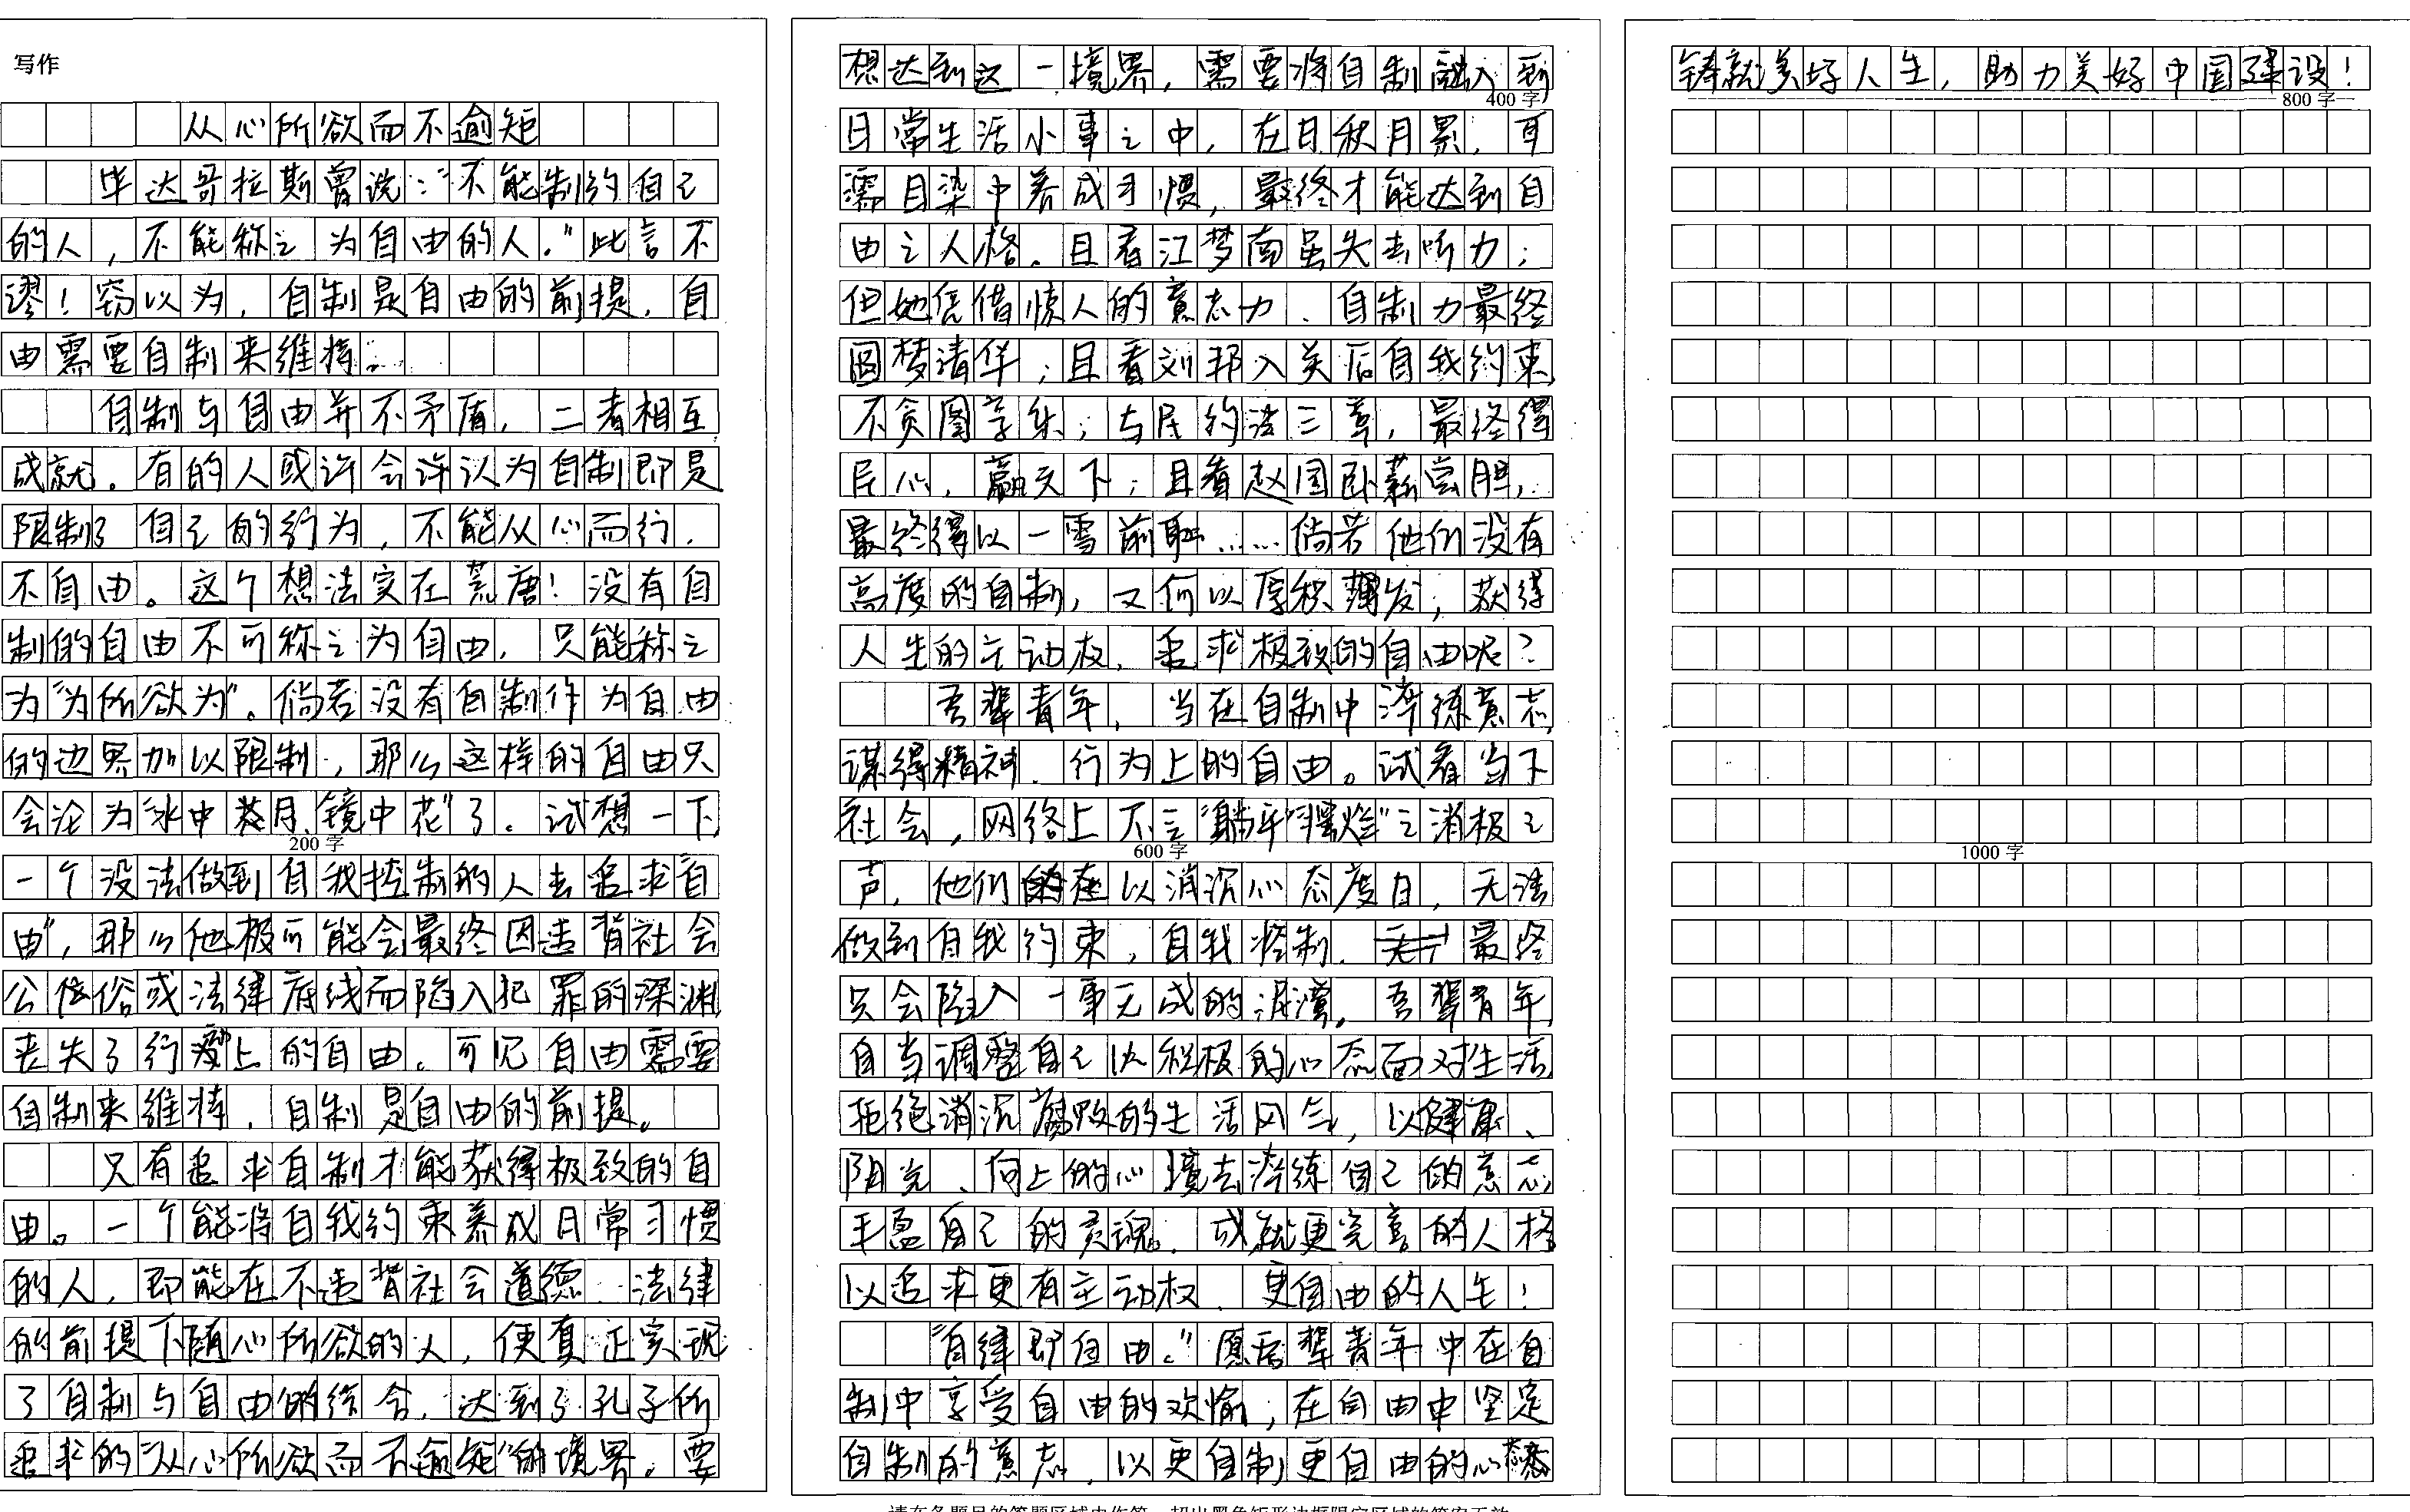 写作
从心所欲而不逾矩
毕达哥拉斯曾说:"不能制约自己
的人,不能称之为自由的人。"此言不
谬!窃以为,自制是自由的前提,自
由需要自制来维持。
自制与自由并不矛盾,二者相互
成就。有的人或许会许认为自制即是
限制了自己的行为,不能从心而行,
不自由。这个想法实在荒唐!没有自
制的自由不可称之为自由,只能称之
为"为所欲为"。倘若没有自制作为自由
的边界加以限制,那么这样的自由只
会沦为"水中月、镜中花"了。试想一下,
200字
一个没法做到自我控制的人去追求"自
由",那么他极可能会最终因违背社会
公俗或法律底线而陷入犯罪的深渊,
丧失了行上的自由。可见自由需要
自制来维持,自制是自由的前提。
只有追求自制才能获得极致的自
由。一个能将自我约束养成日常习惯
的人,即能在不违背社会道德、法律
的前提下随心所欲的人,便真正实现
了自制与自由的结合,达到了孔子所
追求的"从心所欲而不逾矩"的境界。要
想达到这一境界,需要将自制融入到
400字
日常生活小事之中,在日积月累,耳
濡目染中养成习惯,最终才能达到自
由之人格。且看江梦南虽失去听力;
但她凭借惊人的意志力、自制力最终
圆梦清华;且看刘邦入关后自我约束,
不贪图享乐;与民约法三章,最终得
民心,赢天下;且看赵国卧薪尝胆,
最终得以一雪前耻……倘若他们没有
高度的自制,又何以厚积薄发,获得
人生的主动权,追求极致的自由呢?
吾辈青年,当在自制中淬练意志,
谋得精神、行为上的自由。试看当下
社会,网络上不乏"躺平""摆烂"之消极之
600字
声,他们在以消沉心态度日,无法
做到自我约束,自我控制,最终
只会陷入一事无成的泥潭。吾辈青年,
自当调整自己以积极的心态面对生活,
拒绝消沉腐败的生活风气,以健康、
阳光、向上的心境去淬练自己的意志,
丰盈自己的灵魂,成就更完善的人格
以追求更有主动权、更自由的人生!
"自律即自由。"愿吾辈青年中在自
制中享受自由的欢愉,在自由中坚定
自制的意志,以更自制更自由的心态
铸就美好人生,助力美好中国建设!
800字
1000字
请在各题目的答题区域内作答,超出黑色矩形边框限定区域的答案无效